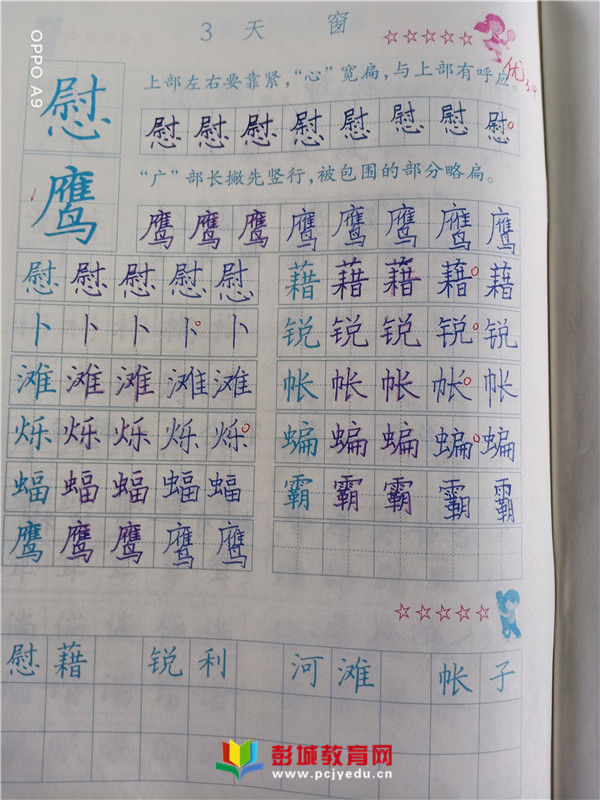 3 天 窗
慰 上部左右要靠紧,“心”宽扁,与上部有呼应。
优 3.4
慰 慰 慰 慰 慰 慰 慰 慰
鹰 “广”部长撇先竖行,被包围的部分略扁。
鹰 鹰 鹰 鹰 鹰 鹰 鹰 鹰
慰 慰 慰 慰 慰 藉 藉 藉 藉 藉
卜 卜 卜 卜 卜 锐 锐 锐 锐 锐
滩 滩 滩 滩 滩 帐 帐 帐 帐 帐
烁 烁 烁 烁 烁 蝙 蝙 蝙 蝙 蝙
蝠 蝠 蝠 蝠 蝠 霸 霸 霸 霸 霸
鹰 鹰 鹰 鹰 鹰
慰 藉 锐 利 河 滩 帐 子
OPPO A9
彭城教育网
www.pcjyedu.cn